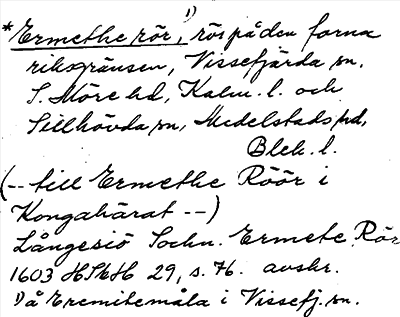 *Ermethe rör, 1) rös på den forna
riksgränsen, Vissefjärda sn,
S. Möre hd, Kalm. l. och
Sillhövda sn, Medelstads hd,
Blek. l.
(-- till Ermethe Röör i
Kongahärat --)
Långesiö Sochn. Ermete Rör
1603 HSkH 29, s. 76. avskr.
1) å Eremitemåla i Vissefj. sn.